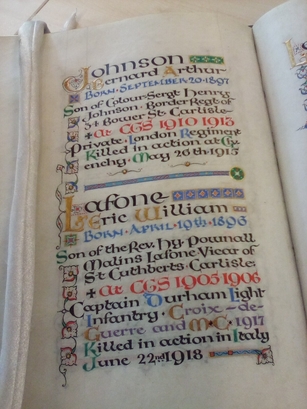 Johnson
Bernard Arthur
Born · September 20 · 1897
Son of Colour-Sergt Henry
Johnson · Border Regt of
34 Bower St. Carlisle ·
✚ At CGS 1910 1913
Private · London Regiment
Killed in action at Giv
enchy · May 26th · 1915
Lafone
Eric William
Born · April · 19th · 1895
Son of the Rev. Hy Pownall
Malins Lafone Vicar of
St Cuthberts · Carlisle ·
✚ At CGS 1905 1906
Captain Durham Light
Infantry · Croix-de-
Guerre and M·C · 1917
Killed in action in Italy
June 22nd 1918